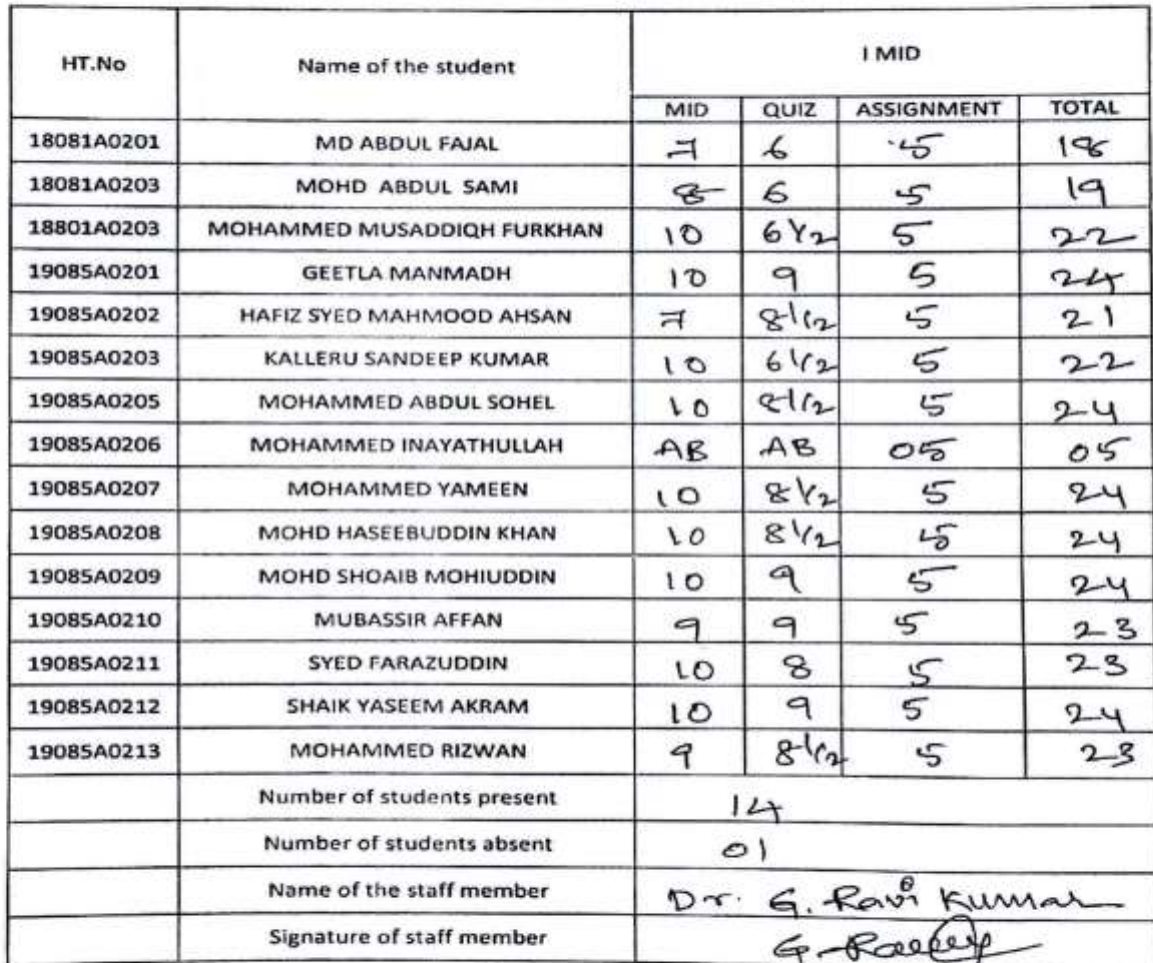 HT.No Name of the student I MID
MID QUIZ ASSIGNMENT TOTAL
18081A0201 MD ABDUL FAJAL 7 6 5 18
18081A0203 MOHD ABDUL SAMI 8 6 5 19
18801A0203 MOHAMMED MUSADDIQH FURKHAN 10 6 1/2 5 22
19085A0201 GEETLA MANMADH 10 9 5 24
19085A0202 HAFIZ SYED MAHMOOD AHSAN 7 8 1/2 5 21
19085A0203 KALLERU SANDEEP KUMAR 10 6 1/2 5 22
19085A0205 MOHAMMED ABDUL SOHEL 10 8 1/2 5 24
19085A0206 MOHAMMED INAYATHULLAH AB AB 05 05
19085A0207 MOHAMMED YAMEEN 10 8 1/2 5 24
19085A0208 MOHD HASEEBUDDIN KHAN 10 8 1/2 5 24
19085A0209 MOHD SHOAIB MOHIUDDIN 10 9 5 24
19085A0210 MUBASSIR AFFAN 9 9 5 23
19085A0211 SYED FARAZUDDIN 10 8 5 23
19085A0212 SHAIK YASEEM AKRAM 10 9 5 24
19085A0213 MOHAMMED RIZWAN 9 8 1/2 5 23
Number of students present 14
Number of students absent 01
Name of the staff member Dr. G. Ravi Kumar
Signature of staff member G.